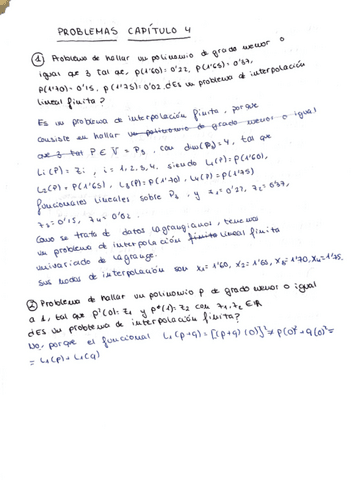 PROBLEMAS CAPÍTULO 4
① Problema de hallar un polinomio de grado menor o
igual que 3 tal que, p(1'60)=0'22, p(1'65)=0'37,
p(1'70)=0'15, p(1'75)=0'02. ¿Es un problema de interpolación
lineal finita?
Es un problema de interpolación finita, porque
consiste en hallar un polinomio de grado menor o igual
que 3 tal P ∈ V = P₃, con dim(P₃)=4, tal que
Li(P)=Zi, i=1,2,3,4. siendo L₁(P)=P(1'60),
L₂(P)=P(1'65), L₃(P)=P(1'70), L₄(P)=P(1'75)
funcionales lineales sobre P₃ y z₁=0'22, z₂=0'37,
z₃=0'15, z₄=0'02.
Como se trata de datos lagrangianos, tenemos
un problema de interpolación finita lineal finita
univariado de Lagrange.
sus nodos de interpolación son x₁=1'60, x₂=1'65, x₃=1'70, x₄=1'75.
② Problema de hallar un polinomio p de grado menor o igual
a 1, tal que p'(0)=z₁ y p(1)=z₂ con z₁,z₂ ∈ R
¿Es un problema de interpolación finita?
No, porque el funcional L₁(p+q)=[(p+q)(0)]'≠p(0)'+q(0)'=
=L₁(p)+L₁(q)